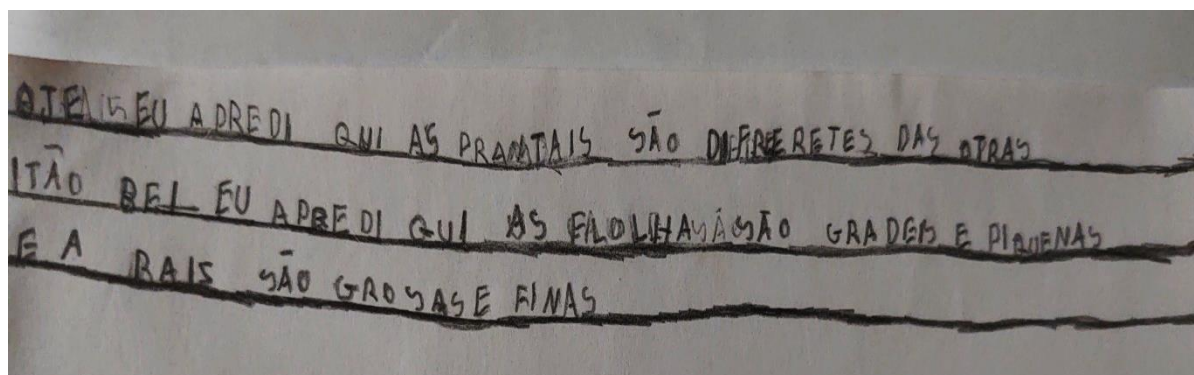 EU APREDI QUI AS PRAMTAIS SÃO DIFIREERETES DAS OTRAS
ITÃO BEI EU APREDI QUI AS FLOLHAS SÃO GRADES E PIQUENAS
E A RAIS SÃO GROSAS E FINAS